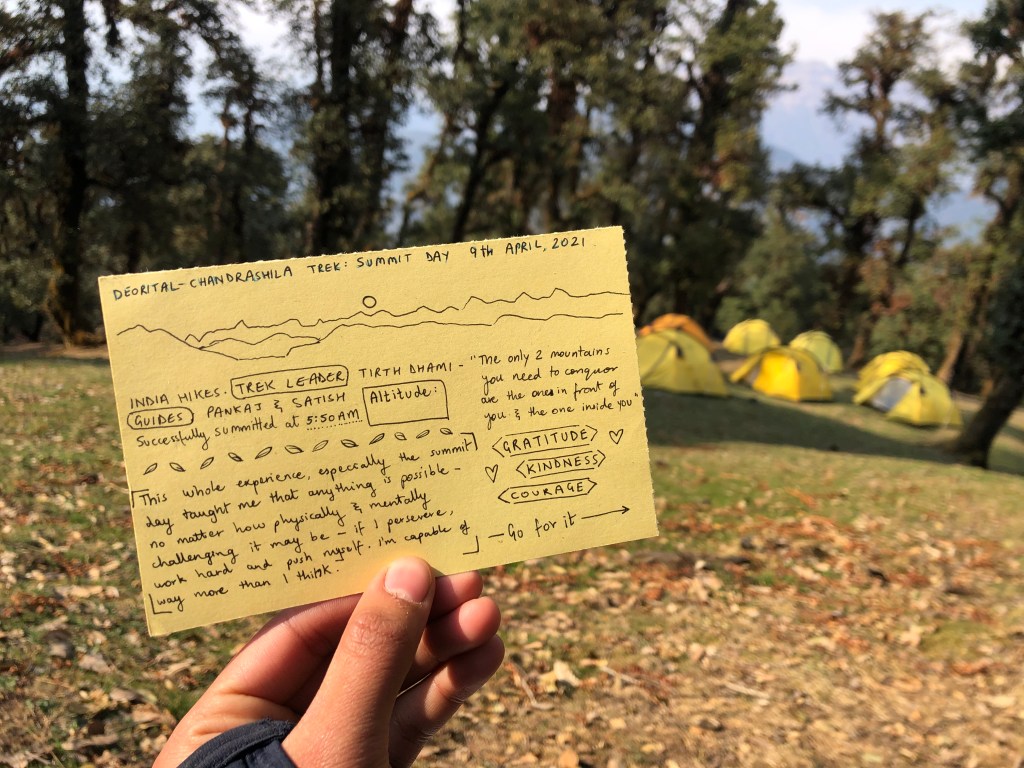 DEORITAL-CHANDRASHILA TREK: SUMMIT DAY 9TH APRIL, 2021
INDIA HIKES: TREK LEADER TIRTH DHAMI -
GUIDES PANKAJ & SATISH
Successfully summitted at 5:50AM
Altitude:
"The only 2 mountains
you need to conquor
are the ones in front of
you & the one inside you"
GRATITUDE
KINDNESS
COURAGE
- Go for it →
This whole experience, especially the summit
day taught me that anything is possible -
no matter how physically & mentally
challenging it may be - if I persevere,
work hard and push myself. I'm capable of
way more than I think.